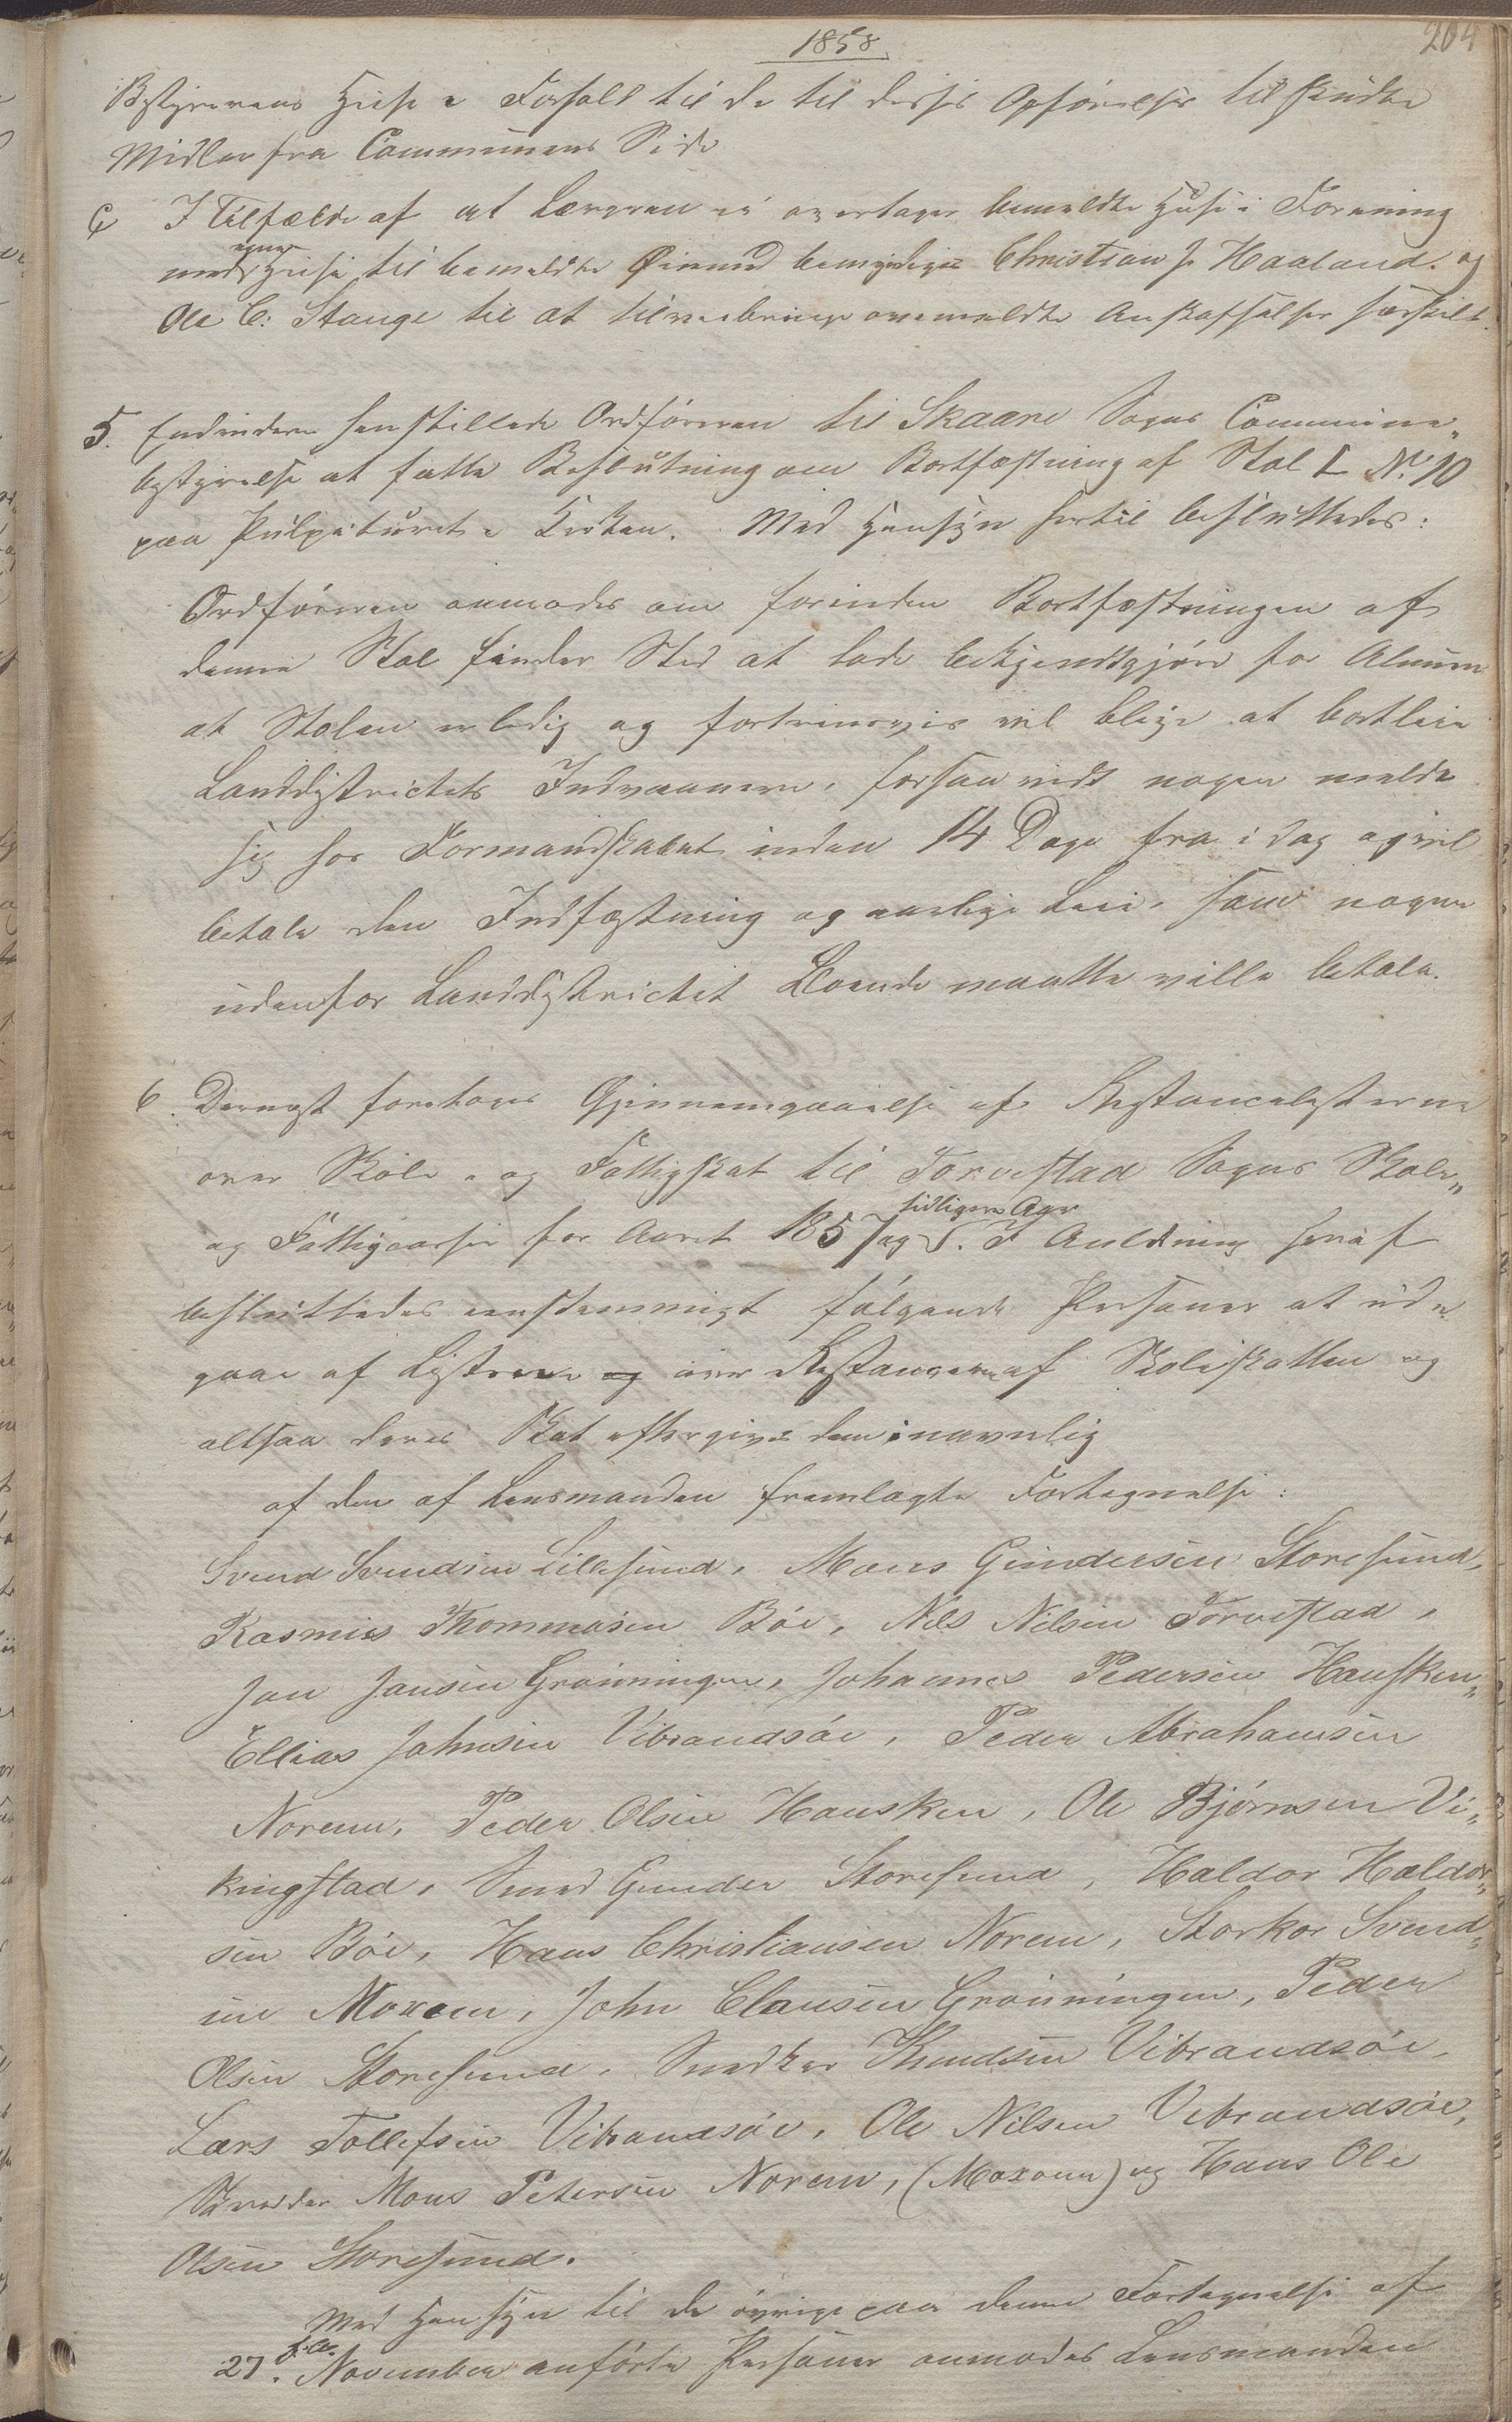 1858
204
Bestyrerens Huse i Forhold til de til disses Opførelser tilskudte
Midler fra Communens Side
C I Tilfælde af at Læreren ei overtager bemeldte Huse i Forening
med egne Huse til bemeldte Øiemed bemyndiges Christian J. Haaland og
Ole C. Stange til at tilveiebringe ovenmeldte Anskaffelser særskilt.
5. Endvidere henstillede Ordføreren til Skaare Sogns Commune„
bestyrelse at fatte Beslutning om Bortfæstning af Stol L No 10
paa Pulpituret i Kirken. Med Hensyn hertil besluttedes:
Ordføreren anmodes om forinden Bortfæstningen af
denne Stol finder Sted at lade bekjendtgjøre for Almuen
at Stolen er ledig og fortrinsvis vil blive at bortleie
Landdistrictets Indvaanere, forsaavidt nogen melde
sig for Formandskabet inden 14 Dage fra i Dag og vil
betale den Indfæstning og aarlige Leie, som nogen
udenfor Landdistrictet Boende maatte ville betale.
6. Dernæst foretoges Gjennemgaaelse af Restancelisterne
over Skole- og Fattigskat til Torvestad Sogns Skole„
og Fattigcasse for Aaret 1857 og tidligere Aar. I Anledning heraf
besluttedes eenstemmigt følgende Personer at ud„
gaae af Listerne og over Restancerne af Skoleskatten og
altsaa deres Skat eftergives dem navnlig
af den af Lensmanden fremlagte Fortegnelse:
Svend Svendsen Lillesund, Mons Gundersen Storesund,
Rasmus Thommasen Bøe, Nils Nilsen Torvestad,
Jon Jansen Grønningen, Johannes Pedersen Hausken„
Ellias Johnsen Vibrandsøe, Peder Abrahamsen
Norem, Peder Olsen Hausken, Ole Bjørnsen Vi„
kingstad, Smed Gunder Storesund, Haldor Haldor„
sen Bøe, Hans Christiansen Norem, Storkor Svend„
sen Moxam, John Clausen Grønningen, Peder
Olsen Storesund, Snedker Knudsen Vibrandsøe,
Lars Tollefsen Vibrandsøe, Ole Nilsen Vibrandsøe,
Skrædder Mons Petersen Norem, (Moxam) og Hans Ole
Olsen Storesund.
Med Hensyn til de øvrige paa denne Fortegnelse af
27. f. A. November anførte Personer anmodes Lensmanden